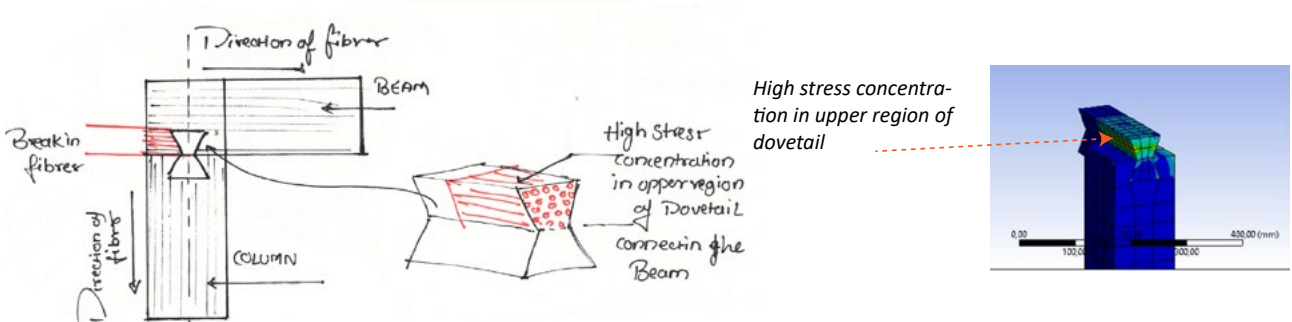 Direction of fibres
BEAM
Break in
fibres
Direction of
fibres
COLUMN
High Stress
concentration
in upper region
of Dovetail
connectin the
Beam
High stress concentra-
tion in upper region of
dovetail
0,00
400,00 (mm)
100,